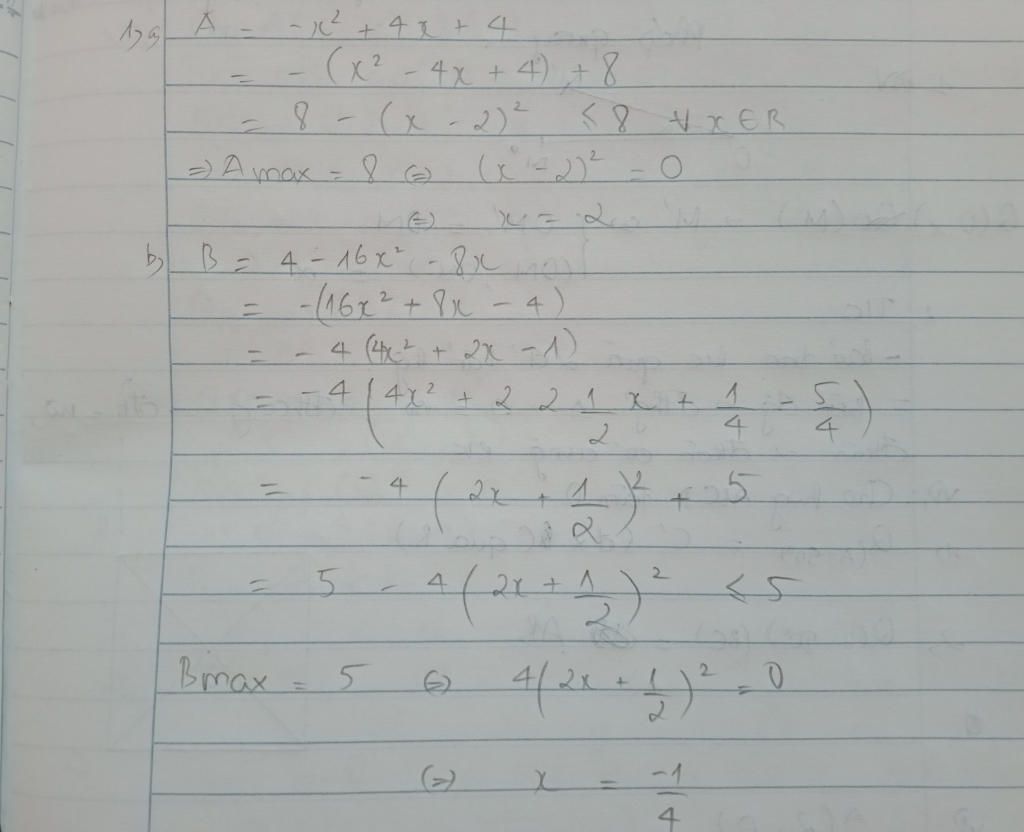 1, a, A = -x² + 4x + 4
= - (x² - 4x + 4) + 8
= 8 - (x - 2)² ≤ 8 ∀ x ∈ R
⇒ A max = 8 ⇔ (x - 2)² = 0
⇔ x = 2
b, B = 4 - 16x² - 8x
= -(16x² + 8x - 4)
= - 4 (4x² + 2x - 1)
= -4 ( 4x² + 2 2 1/2 x + 1/4 - 5/4 )
= -4 ( 2x + 1/2 )² + 5
= 5 - 4 ( 2x + 1/2 )² ≤ 5
Bmax = 5 ⇔ 4( 2x + 1/2 )² = 0
⇔ x = -1/4